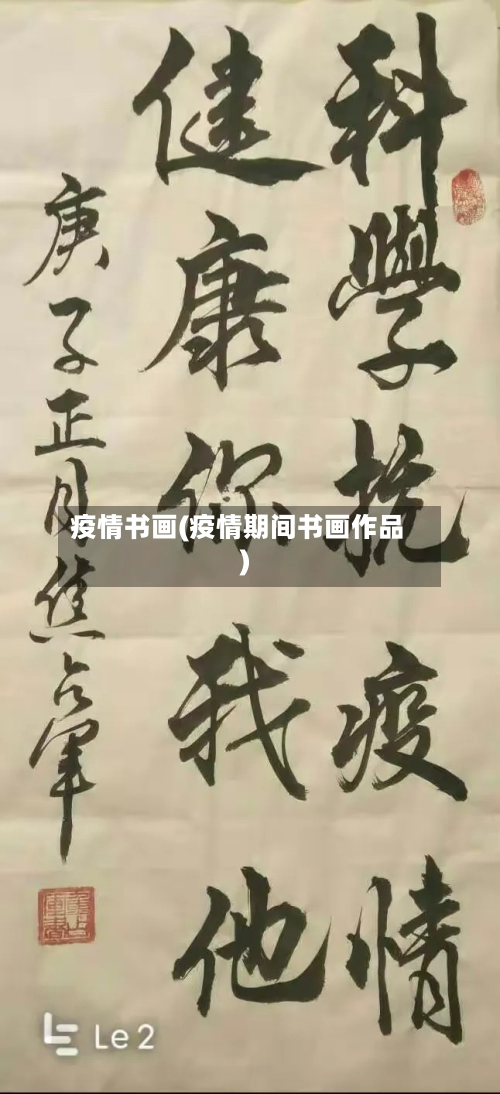 科學抗疫情
健康你我他
庚子正月焦占軍
疫情书画(疫情期间书画作品
)
Le 2